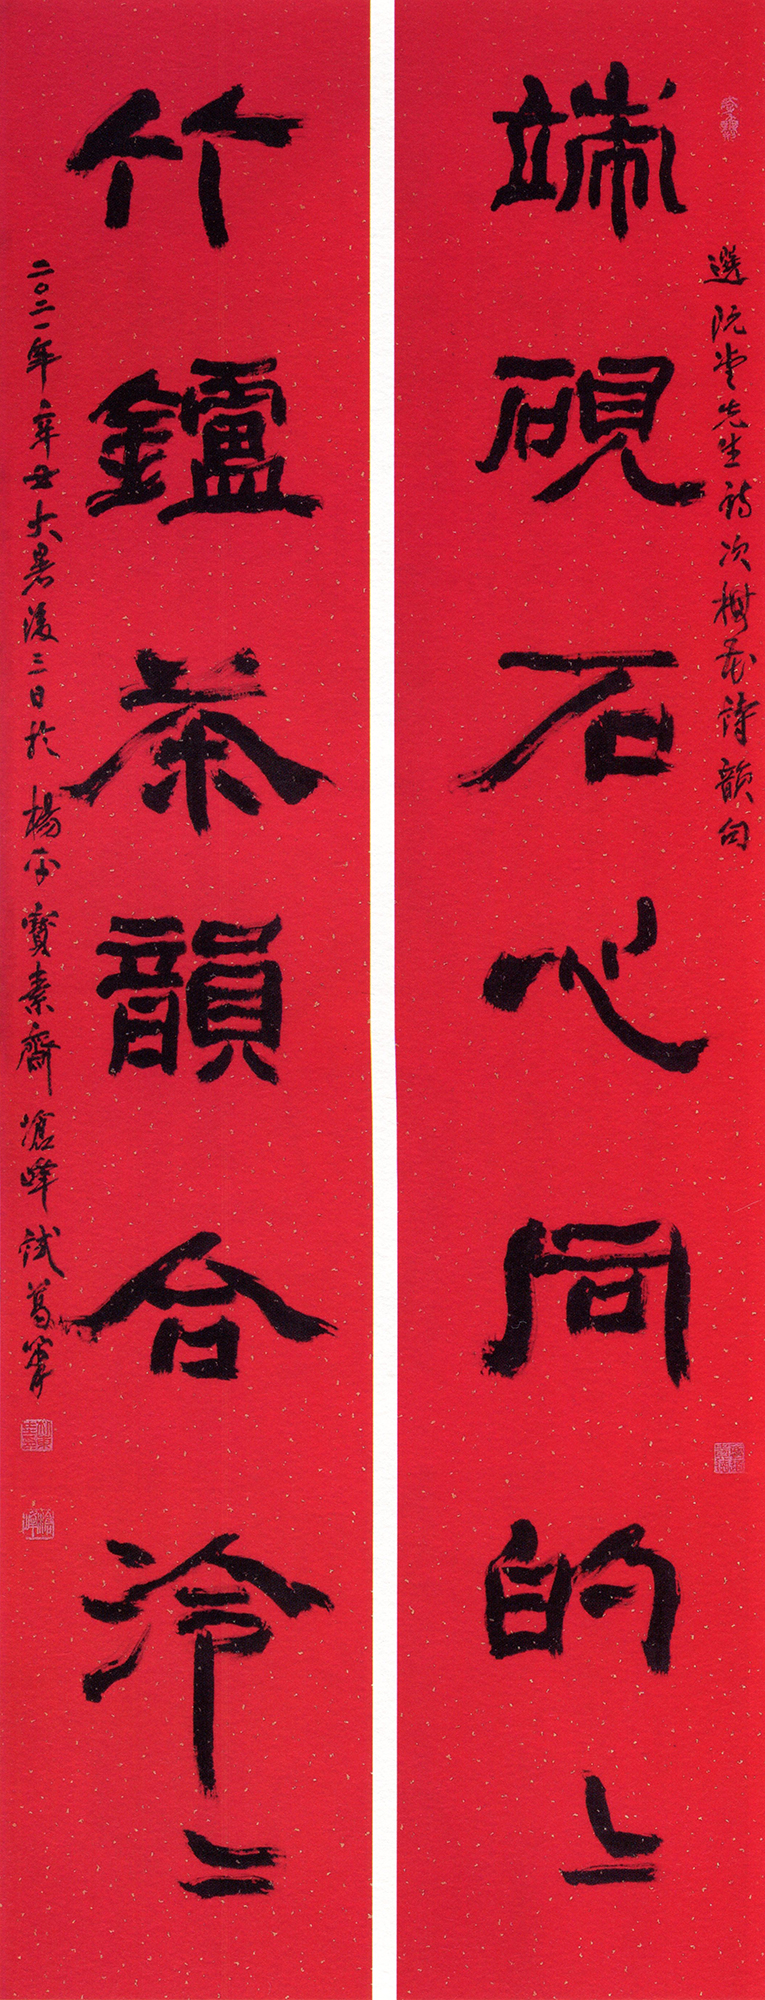 端硯石心同的〻
選阮堂先生詩次樹
詩韻句
竹鑪茶韻合泠〻
二〇二一年辛丑大暑後三日於楊
寶素齋滄峰試
筆